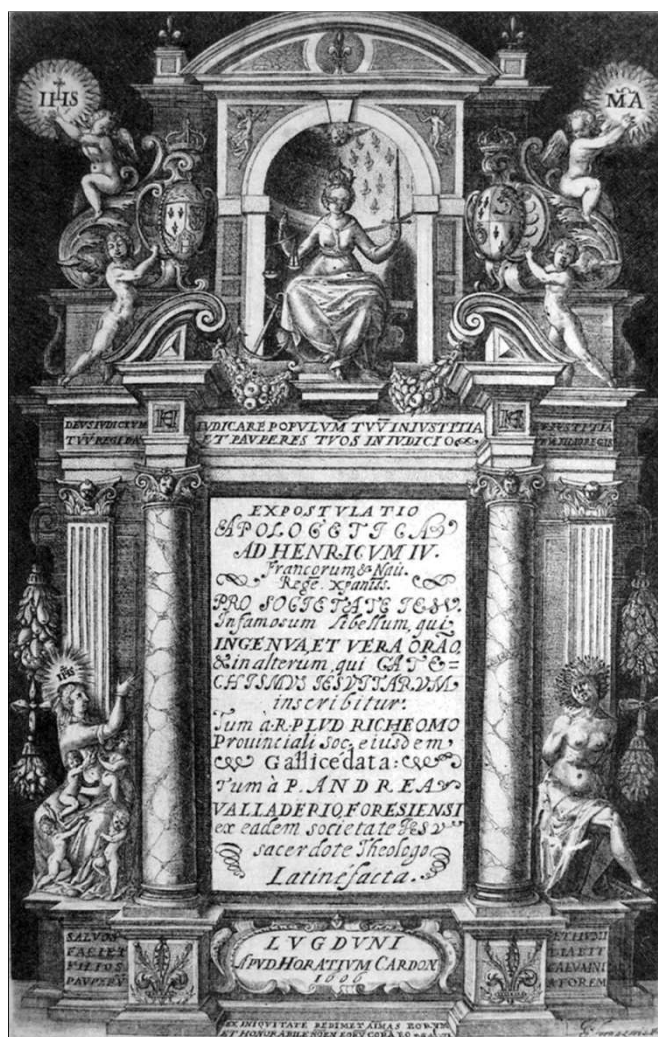 IHS
MA
DEUS IUDICIUM
TVV̄ REGI DA
IUDICARE POPULUM TVV̄ IN IVSTITIA
ET PAVPERES TVOS IN IUDICIO
ET IVSTITIA
FILIO REGIS
EXPOSTVLATIO
APOLOGETICA
AD HENRICVM IV.
Francorum & Nau.
Regē. Xpaniss.
PRO SOCIETATE IESV.
In famosum libellum, qui
INGENVA, ET VERA ORAŌ.
& in alterum, qui CATE=
CHISMVS IESVITARVM
inscribitur.
Tum à R. P. LVD RICHEOMO
Prouinciali Soc. eiusdem
Gallicè data.
Tum à P. ANDREA
VALLADERIO, FORESIENSI
ex eadem societate IESV
sacerdote Theologo
Latinè facta.
IHS
SALVOS
FACIET
FILIOS
PAVPERV̄
LUGDUNI
APVD HORATIVM CARDON
1606
ET HUMI
LIABIT
CALVMNI
ATOREM
EX INIQVITATE REDIMET AĪMAS EORVM
ET HONORABILE NOMEN EORV̄ CORA